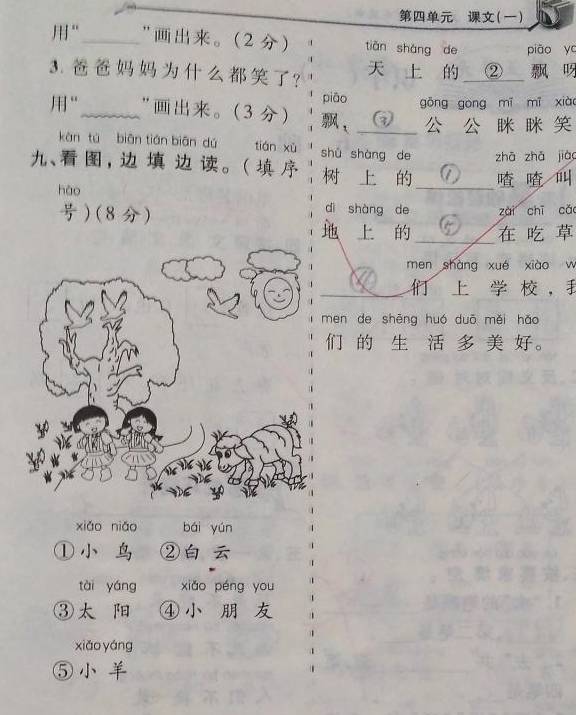 第四单元 课文(一)
用“______”画出来。(2 分)
3. 爸爸妈妈为什么都笑了?
用“﹏﹏﹏”画出来。(3 分)
kàn tú biān tián biān dú tián xù
九、看图,边填边读。(填序
hào
号)(8 分)
xiǎo niǎo bái yún
①小 鸟 ②白 云
tài yáng xiǎo péng you
③太 阳 ④小 朋 友
xiǎo yáng
⑤小 羊
tiān shàng de piāo
天 上 的 ② 飘 呀
piāo gōng gong mī mī xiào
飘、 ③ 公 公 眯 眯 笑
shù shàng de zhā zhā jiào
树 上 的 ① 喳 喳 叫
dì shàng de zài chī cǎo
地 上 的 ⑤ 在 吃 草
men shàng xué xiào
④ 们 上 学 校 ,我
men de shēng huó duō měi hǎo
们 的 生 活 多 美 好。